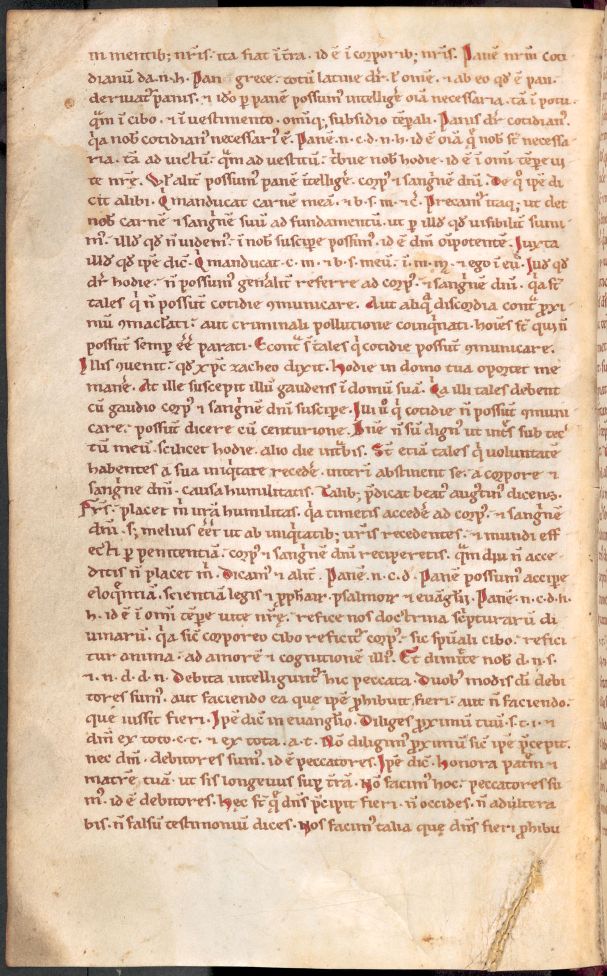 in mentib; nr̄is. ita fiat ī tr̄a. id ē ī corporib; nr̄is. Panē nr̄m coti
dianū da. n. h. Pan grece. totū latine dr̄. ł omē. ⁊ ab eo qd̄ ē pan.
deriuatᷣ panis. ⁊ ido ꝑ panē possumꝰ intelligē oīa necessaria. tā ī potu.
quā ī cibo. ⁊ ī uestimento. omīq; subsidio tēꝑali. Panis dr̄ cotidianꝰ.
qa nob̄ cotidianꝰ necessariꝰ ē. Panē. n. c. d. n. h. id ē oīa q̄ nob̄ st̄ necessa
ria. tā ad uictū. quā ad uestitū. tbue nob̄ hodie. id ē ī omī tēꝑe ui
te nr̄ę. Vł alit̄ possumꝰ panē ītelligē. corpꝰ ⁊ sangnē dnī. De q̊ ipē di
cit alibi. Qi manducat carnē meā. ⁊ b. s. m. ⁊ c̄. Precamᷣ itaq; ut det
nob̄ carnē ⁊ sangnē suū ad fundamentū. ut ꝑ illd̄ qd̄ uisibilit̄ sumi
mꝰ. illd̄ qd̄ n̄ uidemꝰ. ī nob̄ suscipe possimꝰ. id ē dm̄ oīpotentē. Iuxta
illd̄ qd̄ ipē dic̄. Qi manducat. c. m. ⁊ b. s. meū. ī. m. m̄. ⁊ ego ī eū. Iud̄ qd̄
dr̄ hodie. n̄ possumꝰ gen̄alit̄ referre ad corpꝰ. ⁊ sangnē dnī. qa st̄
tales qi n̄ possūt cotidie ꝯmunicare. Aut aliq̄ discordia cont̄ ꝓxi
mū ꝯmaculati. aut criminali pollutione coinqnati. hoīes st̄ qui n̄
possūt semꝑ eē parati. Econtᵃ s̄ tales qi cotidie possūt ꝯmunicare.
Illis ꝯuenit. qd̄ xp̄c zacheo dixit. Hodie in domo tua oportet me
manē. At ille suscepit illū gaudens ī domū suā. Qa illi tales debent
cū gaudio corpꝰ ⁊ sangnē dnī suscipe. Illi u̇ qi cotidie n̄ possūt ꝯmuni
care. possūt dicere cū centurione. Dnē n̄ sū dignꝰ ut int̄s sub tec
tū meū. scilicet hodie. alio die int̄bis. St̄ etiā tales qi uoluntatē
habentes a sua iniqtate recedē. interī abstinent se. a corpore ⁊
sangne dnī. causa humilitatis. Talib; p̄dicat beatꝰ augꝰtinꝰ dicens.
Fr̄s. placet m̄ ur̄a humilitas. qa timetis accedē ad corpꝰ. ⁊ sangnē
dnī. s; meliꝰ eēt ut ab iniqtatib; ur̄is recedentes. ⁊ mundi eff
ecti ꝑ penitentiā. corpꝰ ⁊ sangnē dnī reciperetis. quā diu n̄ acce
ditis n̄ placet m̄. Dicamꝰ ⁊ alit̄. Panē. n. c. d. Panē possumꝰ accipe
eloqntiā. scientiā legis ⁊ ꝓphaꝝ. psalmoꝝ ⁊ euāglii. Panē. n. c. d. n.
h. id ē ī omī tēꝑe uite nr̄ę. refice nos doctrina sc̄pturarū di
uinarū. qa sic̄ corporeo cibo reficitᷣ corpꝰ. sic sp̄uali cibo. refici
tur anima. ad amorē ⁊ cognitionē illiꝰ. Et dimitte nob̄ d. n. s.
⁊. n. d. d. n. Debita intelligunt̄ hic peccata. Duobꝰ modis dī debi
tores sumꝰ. aut faciendo ea quę ipē ꝓhibuit fieri. aut n̄ faciendo.
quę iussit fieri. Ipē dic̄ in euanglio. Diliges ꝓximū tuū. s. t. i. ⁊
dm̄ ex toto. c. t. ⁊ ex tota. a. t. Nō diligimꝰ ꝓximū sic̄ ipē p̄cepit.
nec dm̄. debitores sumꝰ. id ē peccatores. Ipē dic̄. Honora patrē ⁊
matrē tuā. ut sis longeuus suꝑ tr̄ā. Nō facimꝰ hoc. peccatores su
mꝰ. id ē debitores. Hec st̄ q̄ dn̄s p̄cipit fieri. n̄ occides. n̄ adultera
bis. n̄ falsū testimoniū dices. Nos facimꝰ talia quę dn̄s fieri ꝓhibu